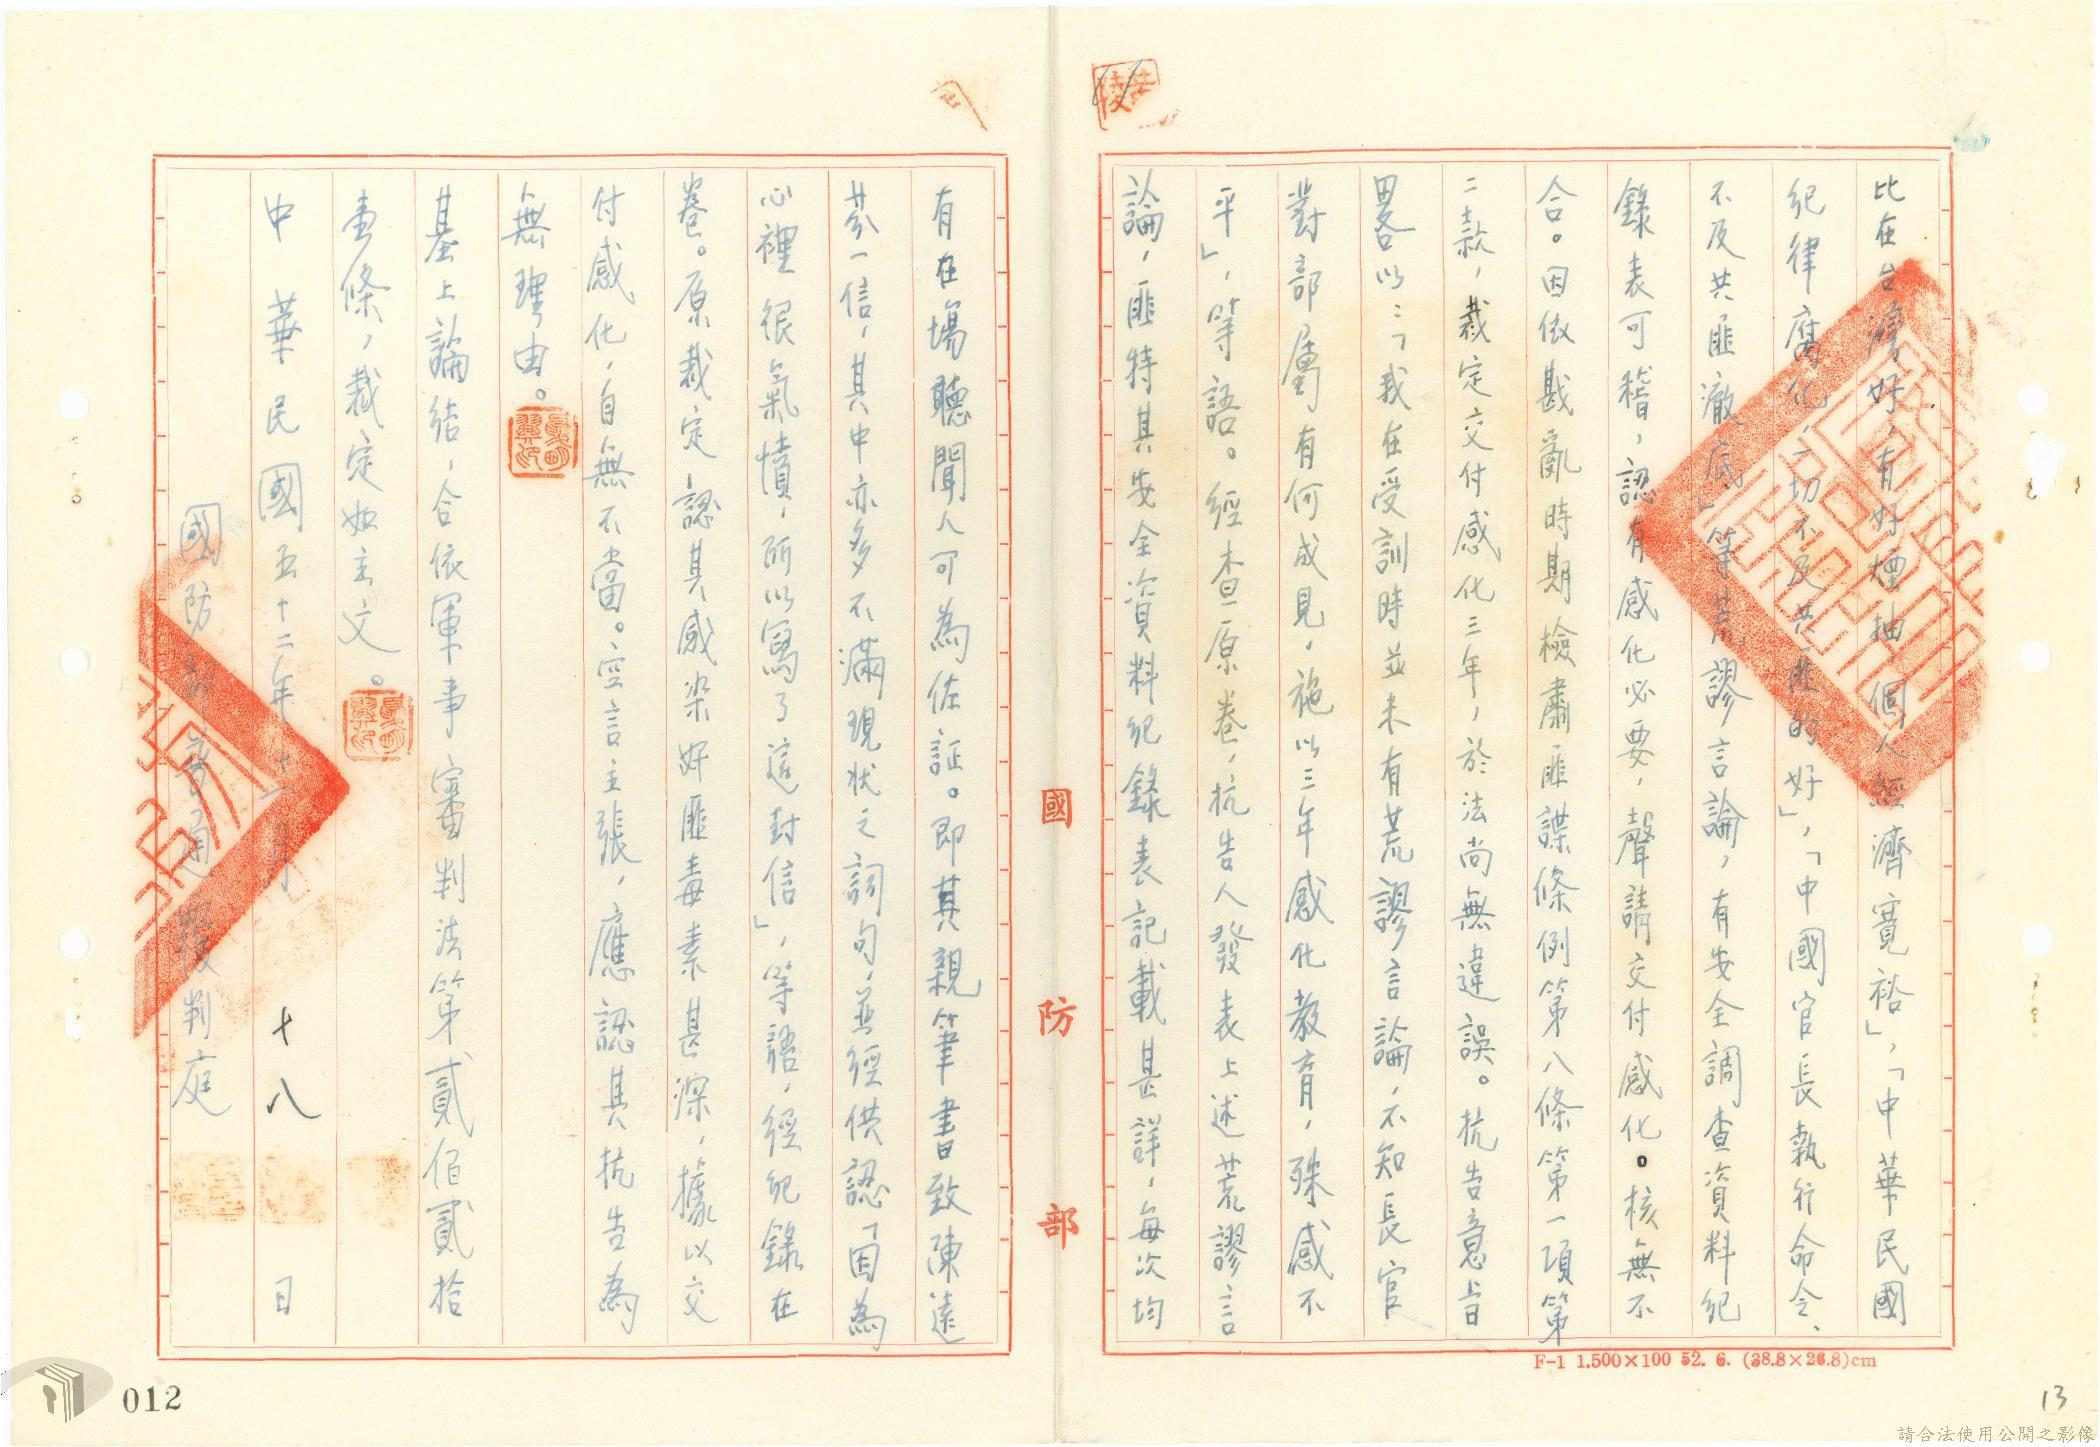 比在台灣好，有好煙抽，個人經濟寬裕」，「中華民國
紀律腐化，一切不及共匪的好」，「中國官長執行命令、
不及共匪澈底」等荒謬言論，有安全調查資料紀
錄表可稽，認有感化必要，聲請交付感化。核無不
合。因依戡亂時期檢肅匪諜條例第八條第一項第
二款，裁定交付感化三年，於法尚無違誤。抗告意旨
畧以：「我在受訓時並未有荒謬言論，不知長官
對部屬有何成見，施以三年感化教育，殊感不
平」，等語。經查原卷，抗告人發表上述荒謬言
論，匪特其安全資料紀錄表記載甚詳，每次均
國防部
有在場聽聞人可為佐証。即其親筆書致陳遠
芬一信，其中亦多不滿現狀之詞句，並經供認「因為
心裡很氣憤，所以寫了這封信」，等語，經紀錄在
卷。原裁定認其感染奸匪毒素甚深，據以交
付感化，自無不當。空言主張，應認其抗告為
無理由。
基上論結，合依軍事審判法第貳佰貳拾
壹條，裁定如主文。
中華民國五十二年十一月十八日
國防部普通覆判庭
F-1 1.500×100 52. 6. (38.8×26.8)cm
012
13
請合法使用公開之影像